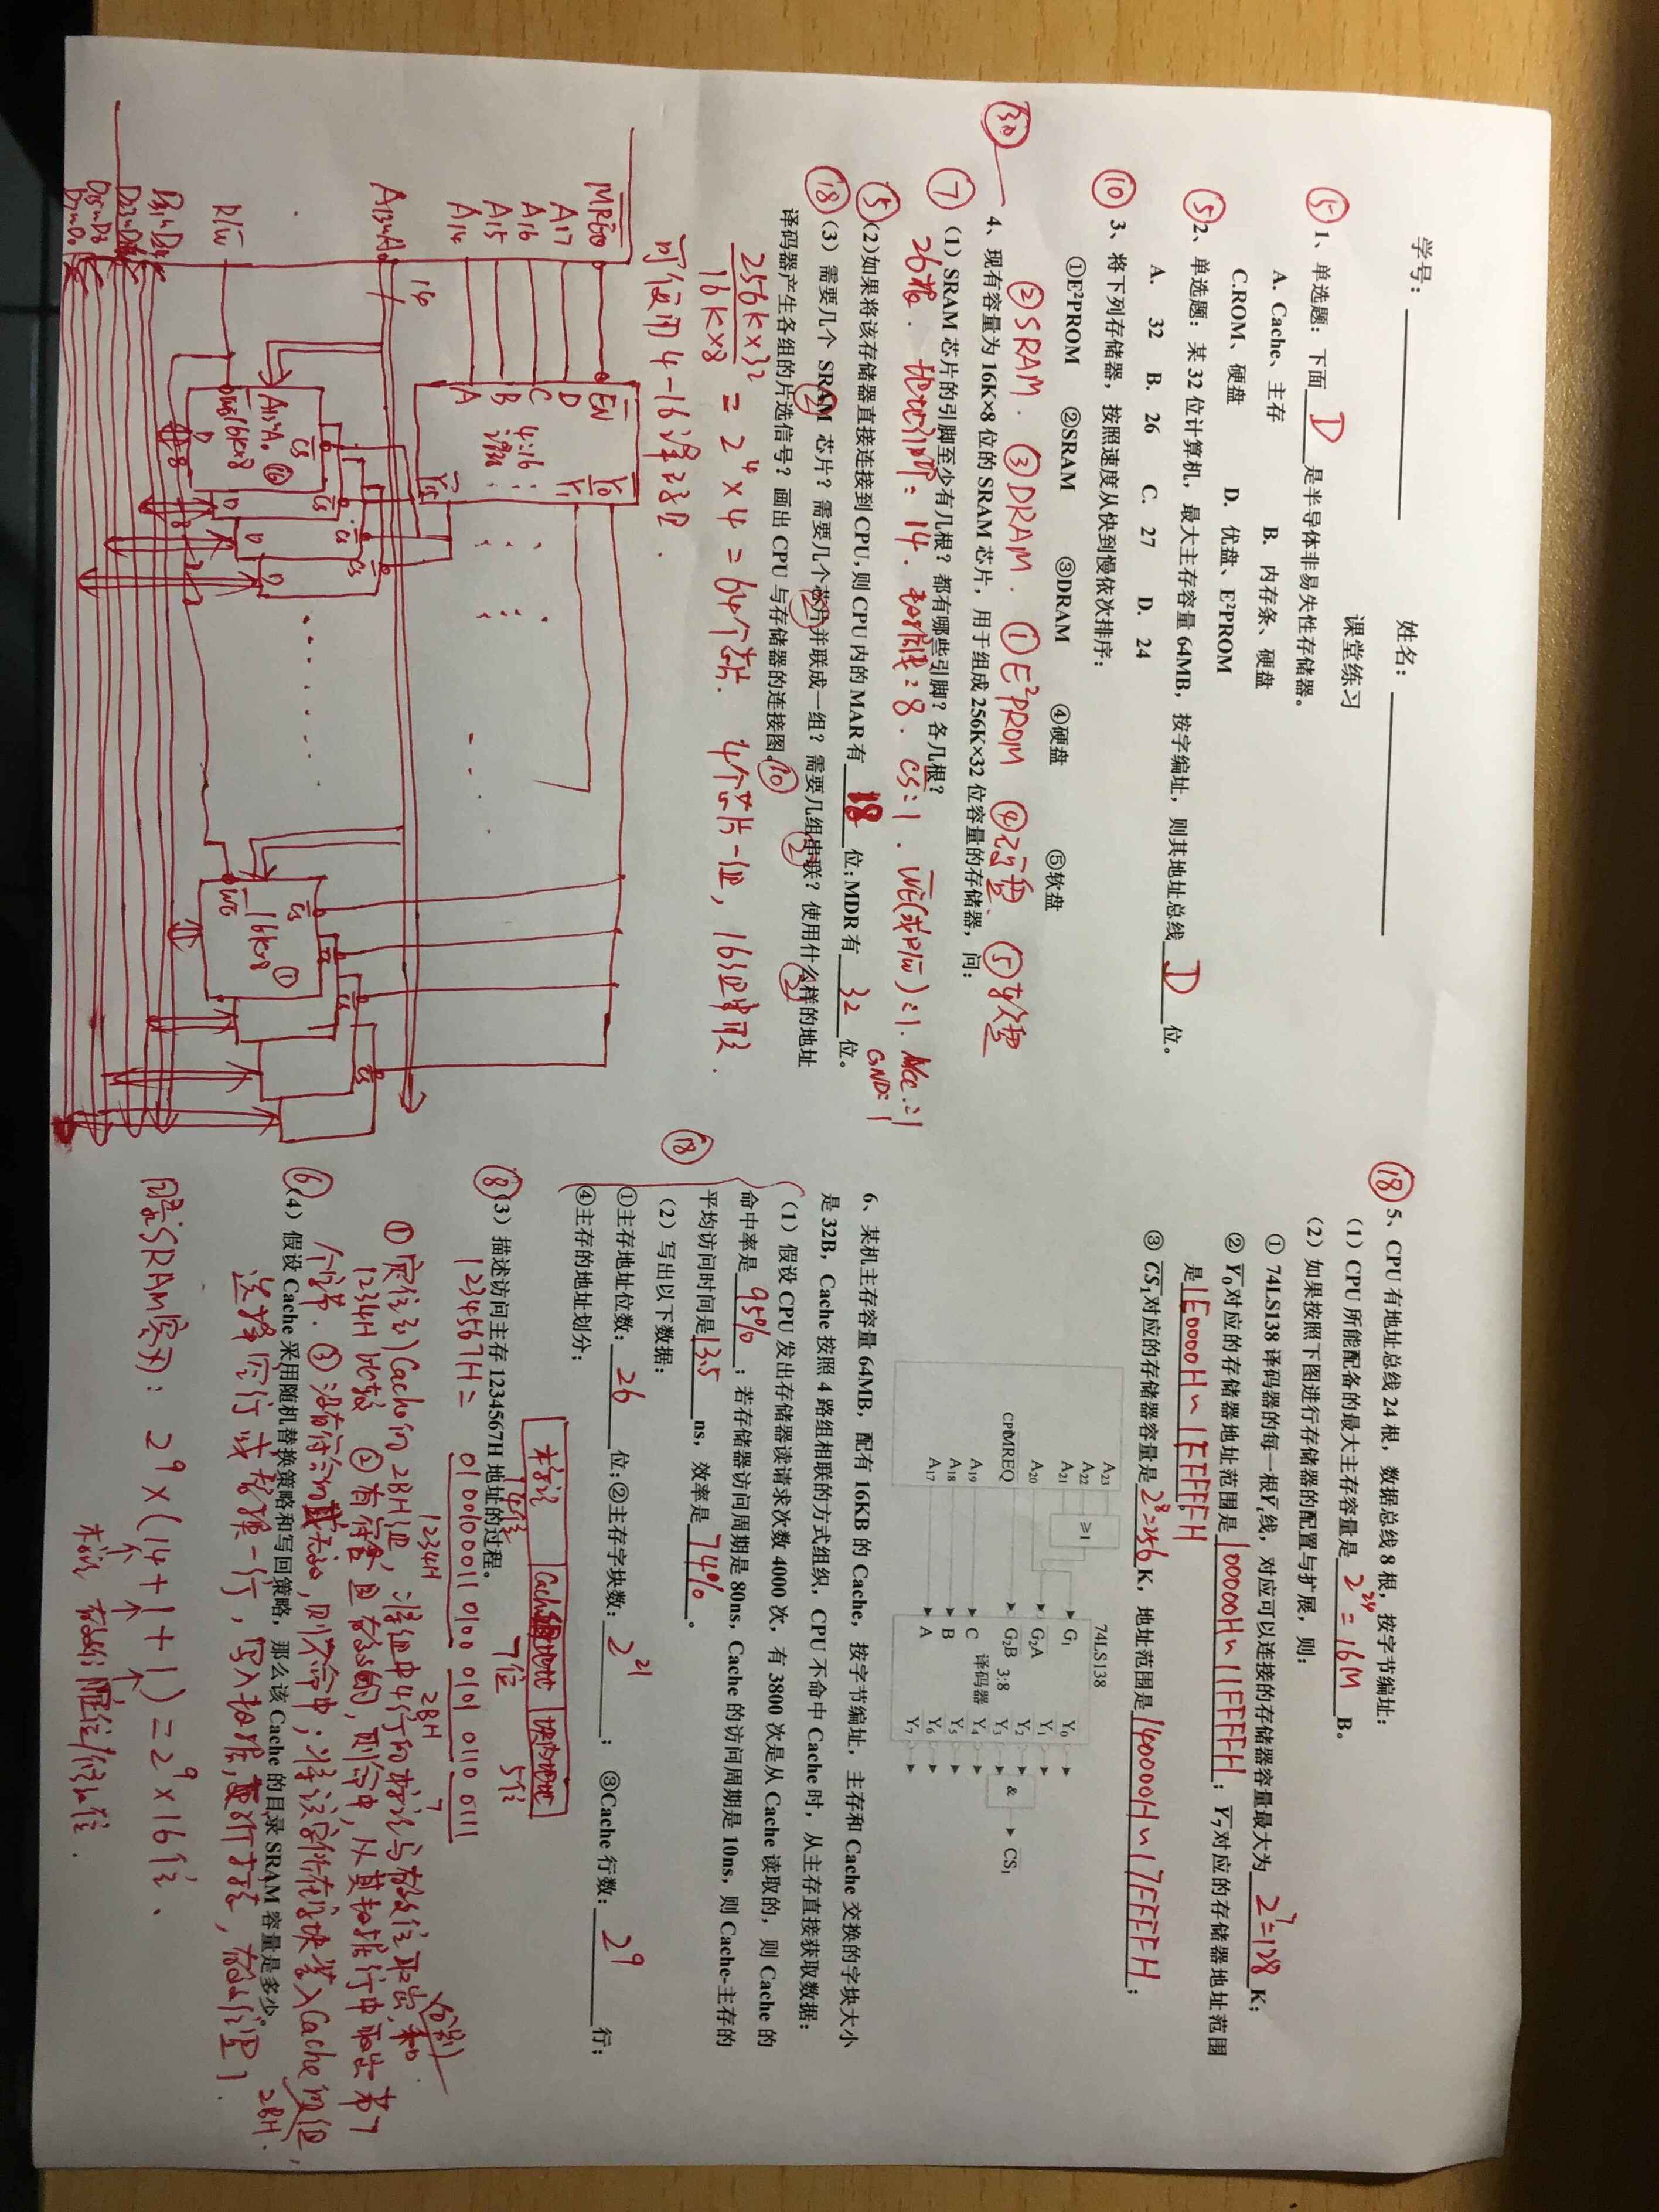 学号：
姓名：
课堂练习
⑤ 1、单选题：下面 D 是半导体非易失性存储器。
A. Cache、主存 B. 内存条、硬盘
C.ROM、硬盘 D. 优盘、E²PROM
⑤ 2、单选题：某 32 位计算机，最大主存容量 64MB，按字编址，则其地址总线 D 位。
A. 32 B. 26 C. 27 D. 24
⑩ 3、将下列存储器，按照速度从快到慢依次排序：
①E²PROM ②SRAM ③DRAM ④硬盘 ⑤软盘
②SRAM. ③DRAM. ①E²PROM ④硬盘. ⑤软盘
㉚ 4、现有容量为 16K×8 位的 SRAM 芯片，用于组成 256K×32 位容量的存储器，问：
⑦ （1）SRAM 芯片的引脚至少有几根？都有哪些引脚？各几根？
26根. 地址引脚：14. 数据线：8. C̅S̅：1. W̅E̅(或R/W̅)：1. Vcc：1
GND：1
⑤ （2）如果将该存储器直接连接到 CPU，则 CPU 内的 MAR 有 18 位；MDR 有 32 位。
⑱ （3）需要几个 SRAM 芯片？需要几个芯片并联成一组？需要几组串联？使用什么样的地址
② ② ② ②
译码器产生各组的片选信号？画出 CPU 与存储器的连接图。⑩
256K×32 / 16K×8 = 2⁴×4 = 64个芯片. 4个芯片一组，16组串联.
可使用4-16译码器.
M̅R̅E̅Q̅ E̅N̅ Y̅0̅
A17 D Y̅1̅
A16 C 4:16
A15 B 译码器
A14 A
Y̅1̅5̅
14
A13~A0
C̅S̅ C̅S̅ C̅S̅ C̅S̅ C̅S̅ C̅S̅ C̅S̅ C̅S̅
A13~A0 ⑯ ①
W̅E̅ 16K×8 16K×8
R/W̅ W̅E̅
D D D D
8
D31~D24
D23~D16
D15~D8
D7~D0
⑱ 5、CPU 有地址总线 24 根，数据总线 8 根，按字节编址：
（1）CPU 所能配备的最大主存容量是 2²⁴=16M B。
（2）如果按照下图进行存储器的配置与扩展，则：
① 74LS138 译码器的每一根Y̅i线，对应可以连接的存储器容量最大为 2⁷=128 K；
② Y̅0̅对应的存储器地址范围是 100000H~11FFFFH ；Y̅7̅对应的存储器地址范围
是 1E0000H~1FFFFFH
③ C̅S̅1̅对应的存储器容量是 2⁸=256 K，地址范围是 140000H~17FFFFH ；
A23
A22 ≥1 74LS138
A21 G1 Y0
A20 G2A Y1
CPU MREQ G2B 3:8 Y2 & CS1
译码器 Y3
A19 C Y4
A18 B Y5
A17 A Y6
Y7
6、某机主存容量 64MB，配有 16KB 的 Cache，按字节编址，主存和 Cache 交换的字块大小
是 32B，Cache 按照 4 路组相联的方式组织，CPU 不命中 Cache 时，从主存直接获取数据：
⑱ （1）假设 CPU 发出存储器读请求次数 4000 次，有 3800 次是从 Cache 读取的，则 Cache 的
命中率是 95% ；若存储器访问周期是 80ns，Cache 的访问周期是 10ns，则 Cache-主存的
平均访问时间是 13.5 ns，效率是 74% 。
（2）写出以下数据：
①主存地址位数： 26 位；②主存字块数： 2²¹ ； ③Cache 行数： 2⁹ 行；
④主存的地址划分；
标记 Cache组地址 块内地址
14位 7位 5位
⑧ （3）描述访问主存 1234567H 地址的过程。
1234567H= 01 00100011 0100 0101 0110 0111
1234H 2BH 7
①定位到Cache的2BH组，将组中4行的标记与有效位取出，分别和
1234H比较 ②有符合且有效的，则命中，从其数据行中取出第7
个字节. ③没有符合的或无效，则不命中；将该字所在字块装入Cache的组，
2BH.
⑥ （4）假设 Cache 采用随机替换策略和写回策略，那么该 Cache 的目录 SRAM 容量是多少。
选择空行或替换一行，写入数据，更新标志，有效位置1.
目录SRAM容为：2⁹×(14+1+1)=2⁹×16位.
标记 有效位 脏位/修改位.